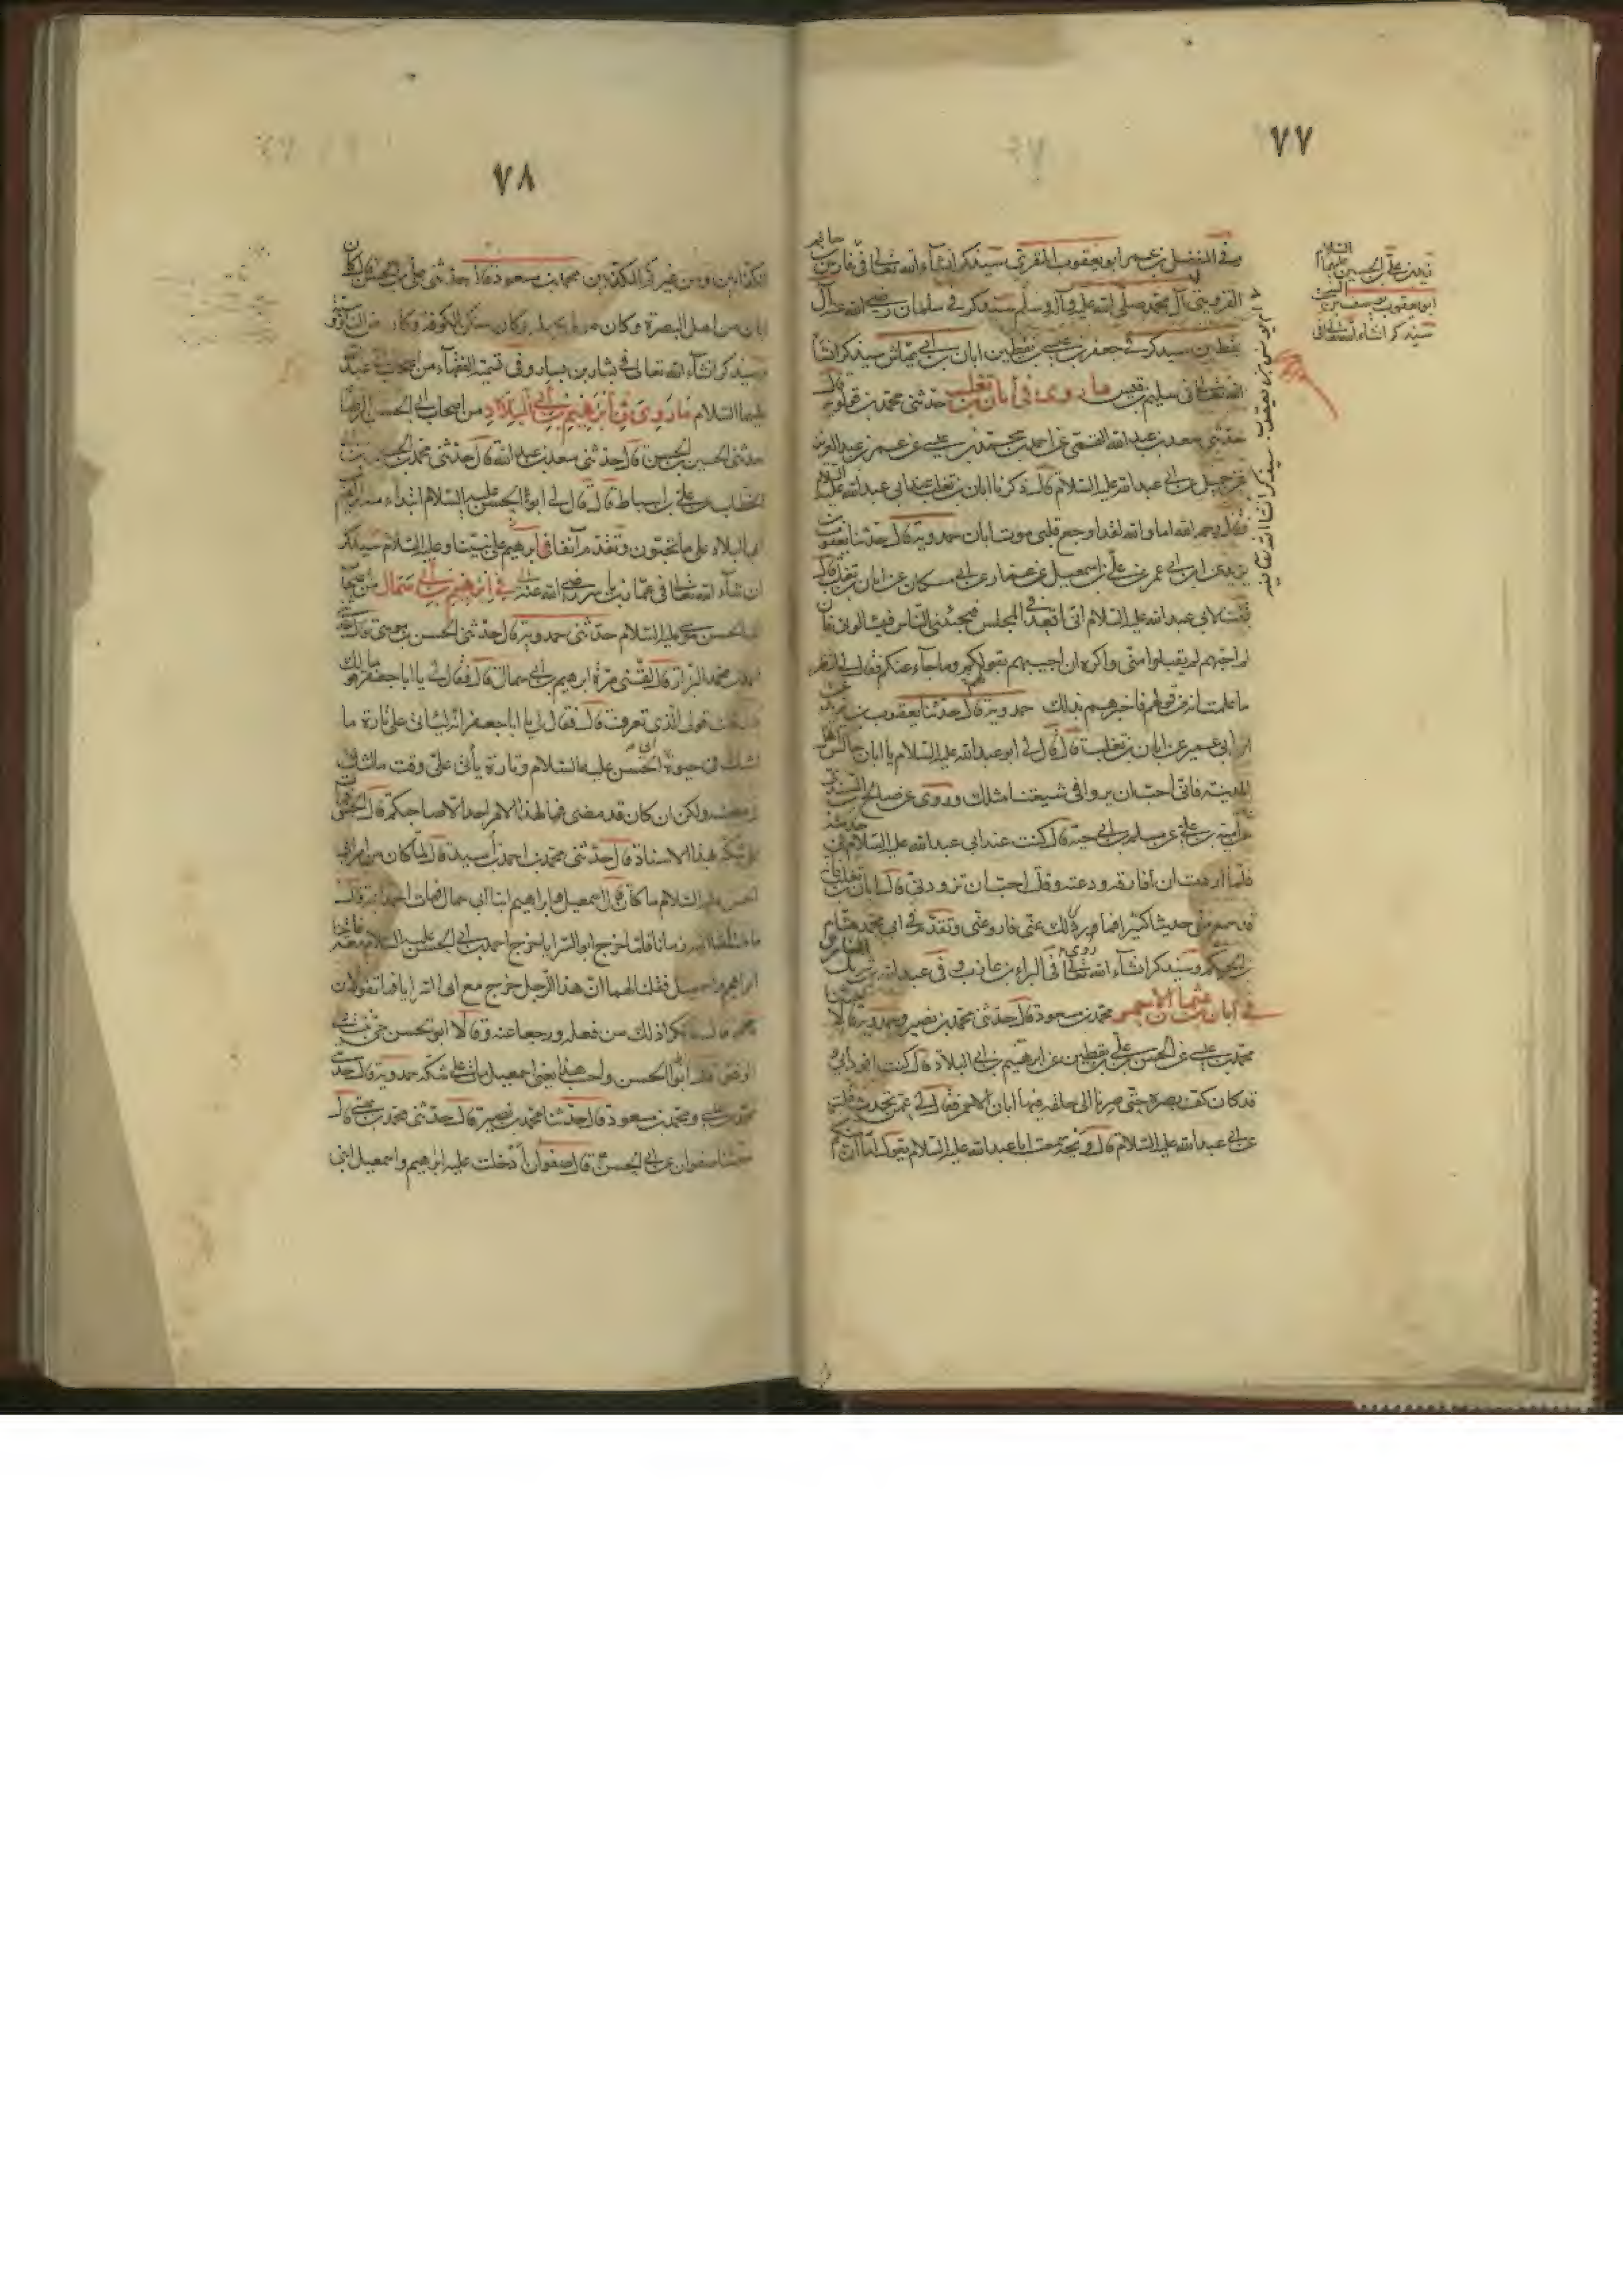 ٧٧
وفي المفضل بن عمر ابو يعقوب المقري سيذكر انشاء الله تعالى في فارس بن حاتم
القزويني آل محمد صلى الله عليه وآله وسلم سيذكر في سلمان رضي الله عنه آل
يقطين سيذكر في جعفر بن عيسى بن يقطين ابان بن ابي عياش سيذكر انشاء
الله تعالى في سليم بن قيس ما روى في أبان بن تغلب حدثني محمد بن قولويه قال
حدثني سعد بن عبد الله القمي عن احمد بن محمد بن عيسى عن عمر بن عبد العزيز
عن جميل عن ابي عبد الله عليه السلام قال ذكرنا ابان بن تغلب عند ابي عبد الله عليه السلام
فقال رحمه الله اما والله لقد اوجع قلبي موت ابان حمدويه قال حدثنا يعقوب بن
يزيد عن ابن ابي عمير عن علي بن اسمعيل بن عمار عن ابن مسكان عن ابان بن تغلب قال
قلت لابي عبد الله عليه السلام اني اقعد في المجلس فيجيئني الناس فيسألوني فان
لم اجبهم لم يقبلوا مني واكره ان اجيبهم بقولكم وما جاء عنكم فقال لي انظر
ما علمت انه من قولهم فاخبرهم بذلك حمدويه قال حدثنا يعقوب بن يزيد عن
ابن أبي عمير عن ابان بن تغلب قال قال لي ابو عبد الله عليه السلام يا ابان جالس اهل
المدينة فاني احب ان يروا في شيعتنا مثلك وروى عن صالح بن السندي
عن امية بن علي عن مسلم بن ابي حية قال كنت عند ابي عبد الله عليه السلام في خدمته
فلما اردت ان أفارقه ودعته وقلت احب ان تزودني قال ائت ابان بن تغلب فانه
قد سمع مني حديثا كثيرا فما روى لك عني فاروه عني وتقدم في ابي محمد هشام
بن الحكم وسيذكر انشاء الله تعالى في البراء بن عازب وفي عبد الله بن شريك
في أبان بن عثمان الاحمر محمد بن مسعود قال حدثني محمد بن نصير وحمدويه قالا حدثنا
محمد بن عيسى عن الحسن بن علي بن يقطين عن ابراهيم بن ابي البلاد قال كنت اقود ابي و
قد كان كف بصره حتى صرنا الى حلقة فيها أبان الاحمر فقال لي عمن تحدث قلت
عن ابي عبد الله عليه السلام قال ويحه سمعت ابا عبد الله عليه السلام يقول اما ان منكم
زيد بن علي بن الحسين عليهما السلام
ابو يعقوب يوسف بن
سيذكر انشاء الله تعالى في
٧٨
الكذابين ومن غيركم المكذبين محمد بن مسعود قال حدثني علي بن الحسن قال كان
ابان من اهل البصرة وكان مولى بجيلة وكان يسكن الكوفة وكان من الناووسية
وسيذكر انشاء الله تعالى في بشار بن يسار وفي تسمية الفقهاء من اصحاب ابي عبد الله
عليه السلام ما روى في أبرهيم بن أبي البلاد من اصحاب ابي الحسن الرضا
حدثني الحسين بن الحسن قال حدثني سعد بن عبد الله قال حدثني محمد بن الحسين بن
الخطاب عن علي بن اسباط قال قال لي ابو الحسن عليه السلام ابتداء منه ابرهيم
ابي البلاد على ما تحبون وتقدم آنفا في أبرهيم على نبينا وعليه السلام سيذكر
ان شاء الله تعالى في عمار بن ياسر رضي الله عنه في ابرهيم بن أبي سمال من اصحاب
ابي الحسن موسى عليه السلام حدثني حمدويه قال حدثني الحسن بن موسى قال حدثني
احمد بن محمد البزاز قال لقيني مرة ابرهيم بن ابي سمال قال فقال لي يا ابا جعفر ما قولك
قلت قولي الذي تعرفت قال فقال لي يا ابا جعفر انه ليأتي علي تارة ما
اشك في حيوة ابي الحسن عليه السلام وتارة يأتي علي وقت ما اشك في
مضيه ولكن ان كان قد مضى فما لهذا الامر احد الا صاحبكم قال الحسن فمات
على شكه بهذا الاسناد قال حدثني محمد بن احمد بن أسيد قال لما كان من امر ابي
الحسن عليه السلام ما كان قال اسمعيل وابراهيم ابنا ابي سمال فنأت احمد ابنه قال
فاختلفا اليه زمانا فلما خرج ابو السرايا خرج احمد بن ابي الحسن عليه السلام معه فأتينا
ابراهيم واسمعيل فقلنا لهما ان هذا الرجل خرج مع ابي السرايا فما تقولان
قال فانكرا ذلك من فعله ورجعا عنه وقالا ابو الحسن حي نثبت على
الوقف قال ابو الحسن واحسب هذا يعني اسمعيل مات على شكه حمدويه قال حدثني
محمد بن عيسى ومحمد بن مسعود قال حدثنا محمد بن نصير قال حدثني محمد بن عيسى قال
حدثنا صفوان عن ابي الحسن قال صفوان أدخلت عليه ابرهيم واسمعيل ابني